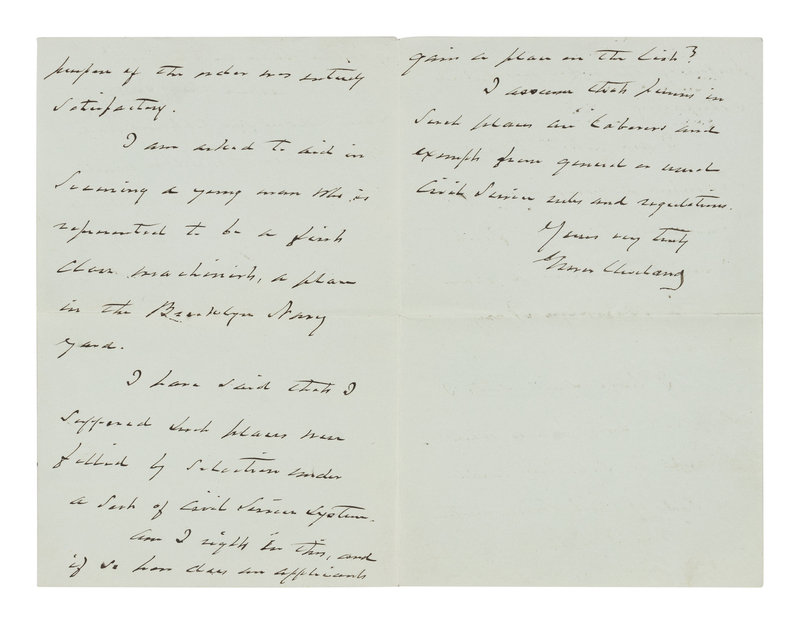 purpose of the order was entirely
satisfactory.
I am asked to aid in
securing a young man who is
represented to be a first
class machinist, a place
in the Brooklyn Navy
Yard.
I have said that I
supposed such places were
filled by selection under
a sort of Civil Service system.
Am I right in this, and
if so how does an applicant
gain a place on the list?
I assume that persons in
such places are laborers and
exempt from general or usual
Civil Service rules and regulations.
Yours very truly
Grover Cleveland